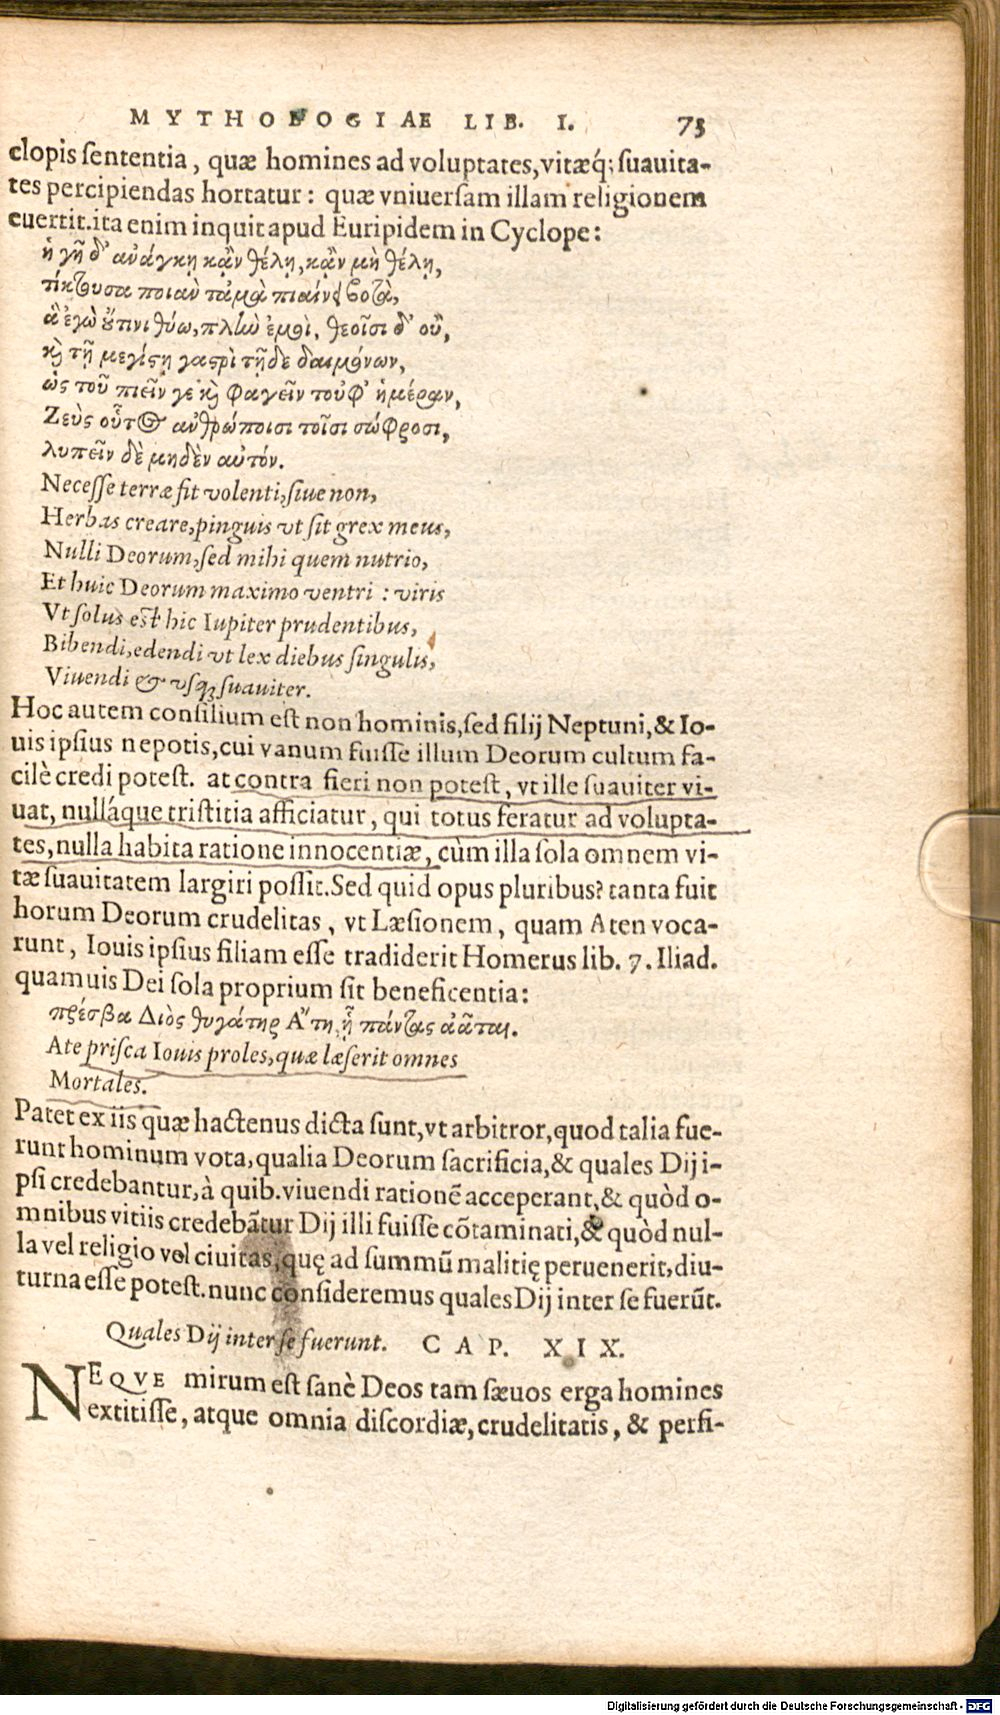 MYTHOLOGIAE LIB. I. 75
clopis sententia, quæ homines ad voluptates, vitæq́; suauita-
tes percipiendas hortatur: quæ vniuersam illam religionem
euertit. ita enim inquit apud Euripidem in Cyclope:
ἡ γῆ δ' ἀνάγκῃ κἂν θέλῃ, κἂν μὴ θέλῃ,
τίκτουσα ποίαν τἀμὰ πιαίνει βοτὰ,
ἃ ἐγὼ οὔτινι θύω, πλὴν ἐμοὶ, θεοῖσι δ' οὔ,
καὶ τῇ μεγίστῃ γαστρὶ τῇδε δαιμόνων,
ὡς τοῦ πιεῖν γε καὶ φαγεῖν τοὐφ' ἡμέραν,
Ζεὺς οὗτος ἀνθρώποισι τοῖσι σώφροσι,
λυπεῖν δὲ μηδὲν αὑτόν.
Necesse terræ fit volenti, siue non,
Herbas creare, pinguis vt sit grex meus,
Nulli Deorum, sed mihi quem nutrio,
Et huic Deorum maximo ventri : viris
Vt solus est hic Iupiter prudentibus,
Bibendi, edendi vt lex diebus singulis,
Viuendi & vsq; suauiter.
Hoc autem consilium est non hominis, sed filij Neptuni, & Io-
uis ipsius nepotis, cui vanum fuisse illum Deorum cultum fa-
cilè credi potest. at contra fieri non potest, vt ille suauiter vi-
uat, nulláque tristitia afficiatur, qui totus feratur ad volupta-
tes, nulla habita ratione innocentiæ, cùm illa sola omnem vi-
tæ suauitatem largiri possit. Sed quid opus pluribus? tanta fuit
horum Deorum crudelitas, vt Læsionem, quam Aten voca-
runt, Iouis ipsius filiam esse tradiderit Homerus lib. 7. Iliad.
quamuis Dei sola proprium sit beneficentia:
πρέσβα Διὸς θυγάτηρ Ἄτη, ἣ πάντας ἀᾶται.
Ate prisca Iouis proles, quæ læserit omnes
Mortales.
Patet ex iis quæ hactenus dicta sunt, vt arbitror, quod talia fue-
runt hominum vota, qualia Deorum sacrificia, & quales Dij i-
psi credebantur, à quib. viuendi rationẽ acceperant, & quòd o-
mnibus vitiis credebãtur Dij illi fuisse cõtaminati, & quòd nul-
la vel religio vel ciuitas, quę ad summũ malitię peruenerit, diu-
turna esse potest. nunc consideremus quales Dij inter se fuerũt.
Quales Dij inter se fuerunt. CAP. XIX.
NEQVE mirum est sanè Deos tam sæuos erga homines
extitisse, atque omnia discordiæ, crudelitatis, & perfi-
Digitalisierung gefördert durch die Deutsche Forschungsgemeinschaft - DFG